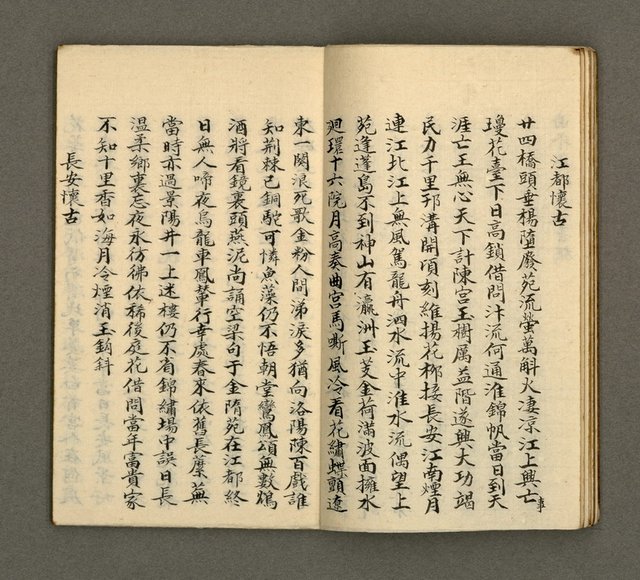 江都懷古
廿四橋頭垂楊墮廢苑流螢萬斛火凄凉江上興亡事
瓊花臺下日高鎖借問汴流何通淮錦帆當日到天
涯亡王無心天下計陳宮玉樹厲益階遂興大功竭
民力千里邗溝開頃刻維揚花柳接長安江南煙月
連江北江上無風駕龍舟泗水流中淮水流偶望上
苑逢蓬島不到神山有瀛洲玉芰金荷滿波面擁水
廻環十六院月高奏曲宮馬嘶風冷看花繡蝶顫遼
東一閧浪死歌金粉人間涕淚多猶向洛陽陳百戲誰
知荆棘已銅駝可憐魚藻仍不悟朝堂鸞鳳頌無數鴆
酒將看鏡裏頭燕泥尚誦空梁句于金隋苑在江都終
日無人啼夜烏龍車鳳輦行幸處春來依舊長蘼蕪
當時亦過景陽井一上迷樓仍不看錦繡場中誤日長
溫柔鄉裏忘夜永彷彿依稀後庭花借問當年富貴家
不知十里香如海月冷煙消玉鈎斜
長安懷古